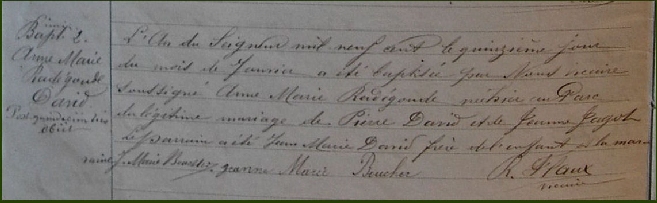 Bapt. 2.
Anne Marie
Radégonde
David
obiit
L'An du Seigneur mil neuf cent le quinzième jour
du mois de Janvier a été baptisée par Nous vicaire
soussigné Anne Marie Radégonde née hier au Parc
du légitime mariage de Pierre David et de Jeanne
Le parrain a été Jean Marie David frère de l'enfant et la mar
raine J. Marie
Jeanne Marie Boucher
R. Flaux
vicaire